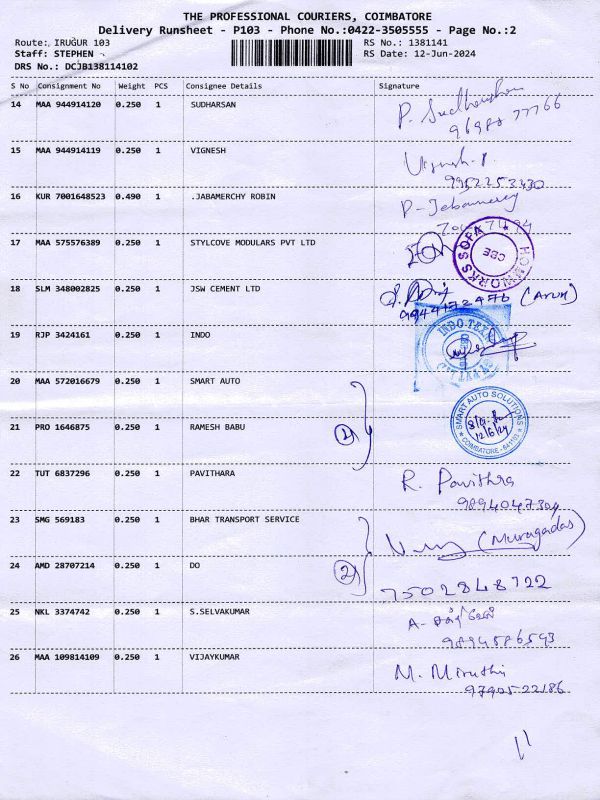 THE PROFESSIONAL COURIERS, COIMBATORE
Delivery Runsheet - P103 - Phone No.:0422-3505555 - Page No.:2
Route: IRUGUR 103 RS No.: 1381141
Staff: STEPHEN RS Date: 12-Jun-2024
DRS No.: DCJB138114102
S No Consignment No Weight PCS Consignee Details Signature
14 MAA 944914120 0.250 1 SUDHARSAN P. Sudharshan
96987 77766
15 MAA 944914119 0.250 1 VIGNESH Vignesh.
9952253430
16 KUR 7001648523 0.490 1 .JABAMERCHY ROBIN P-Jebamercy
17 MAA 575576389 0.250 1 STYLCOVE MODULARS PVT LTD
HOMWORKS SOFA
CBE
18 SLM 348002825 0.250 1 JSW CEMENT LTD
9944172476 (Arun)
19 RJP 3424161 0.250 1 INDO INDO TEXX
20 MAA 572016679 0.250 1 SMART AUTO
SMART AUTO SOLUTIONS
12/6/24
COIMBATORE - 641103
21 PRO 1646875 0.250 1 RAMESH BABU 2
22 TUT 6837296 0.250 1 PAVITHARA R. Pavithra
9894047304
23 SMG 569183 0.250 1 BHAR TRANSPORT SERVICE (Murugadas)
24 AMD 28707214 0.250 1 DO 2 7502848722
25 NKL 3374742 0.250 1 S.SELVAKUMAR A- சக்திவேல்
9894586593
26 MAA 109814109 0.250 1 VIJAYKUMAR M. Miruthi
97905 22186